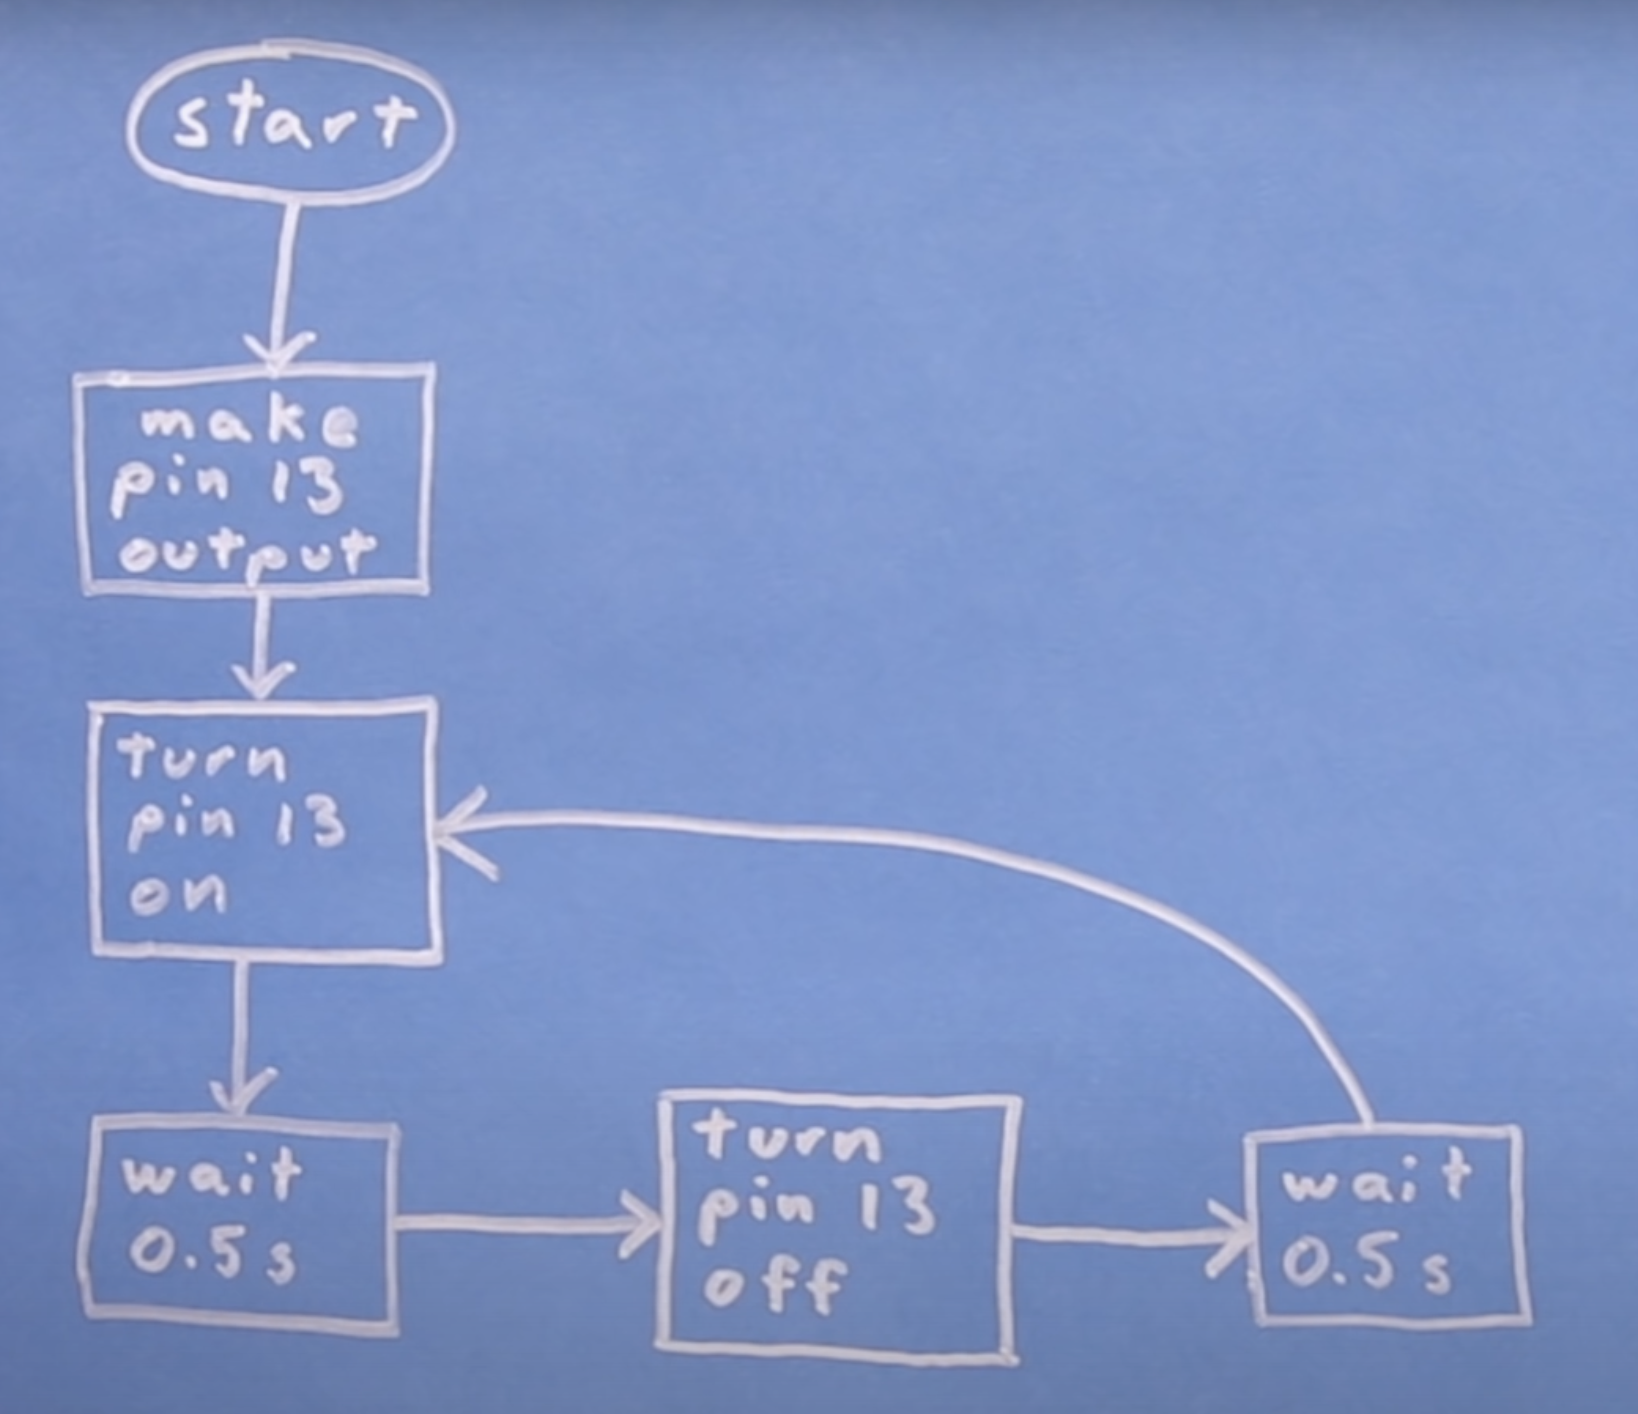 start
make
pin 13
output
turn
pin 13
on
wait
0.5s
turn
pin 13
off
wait
0.5s